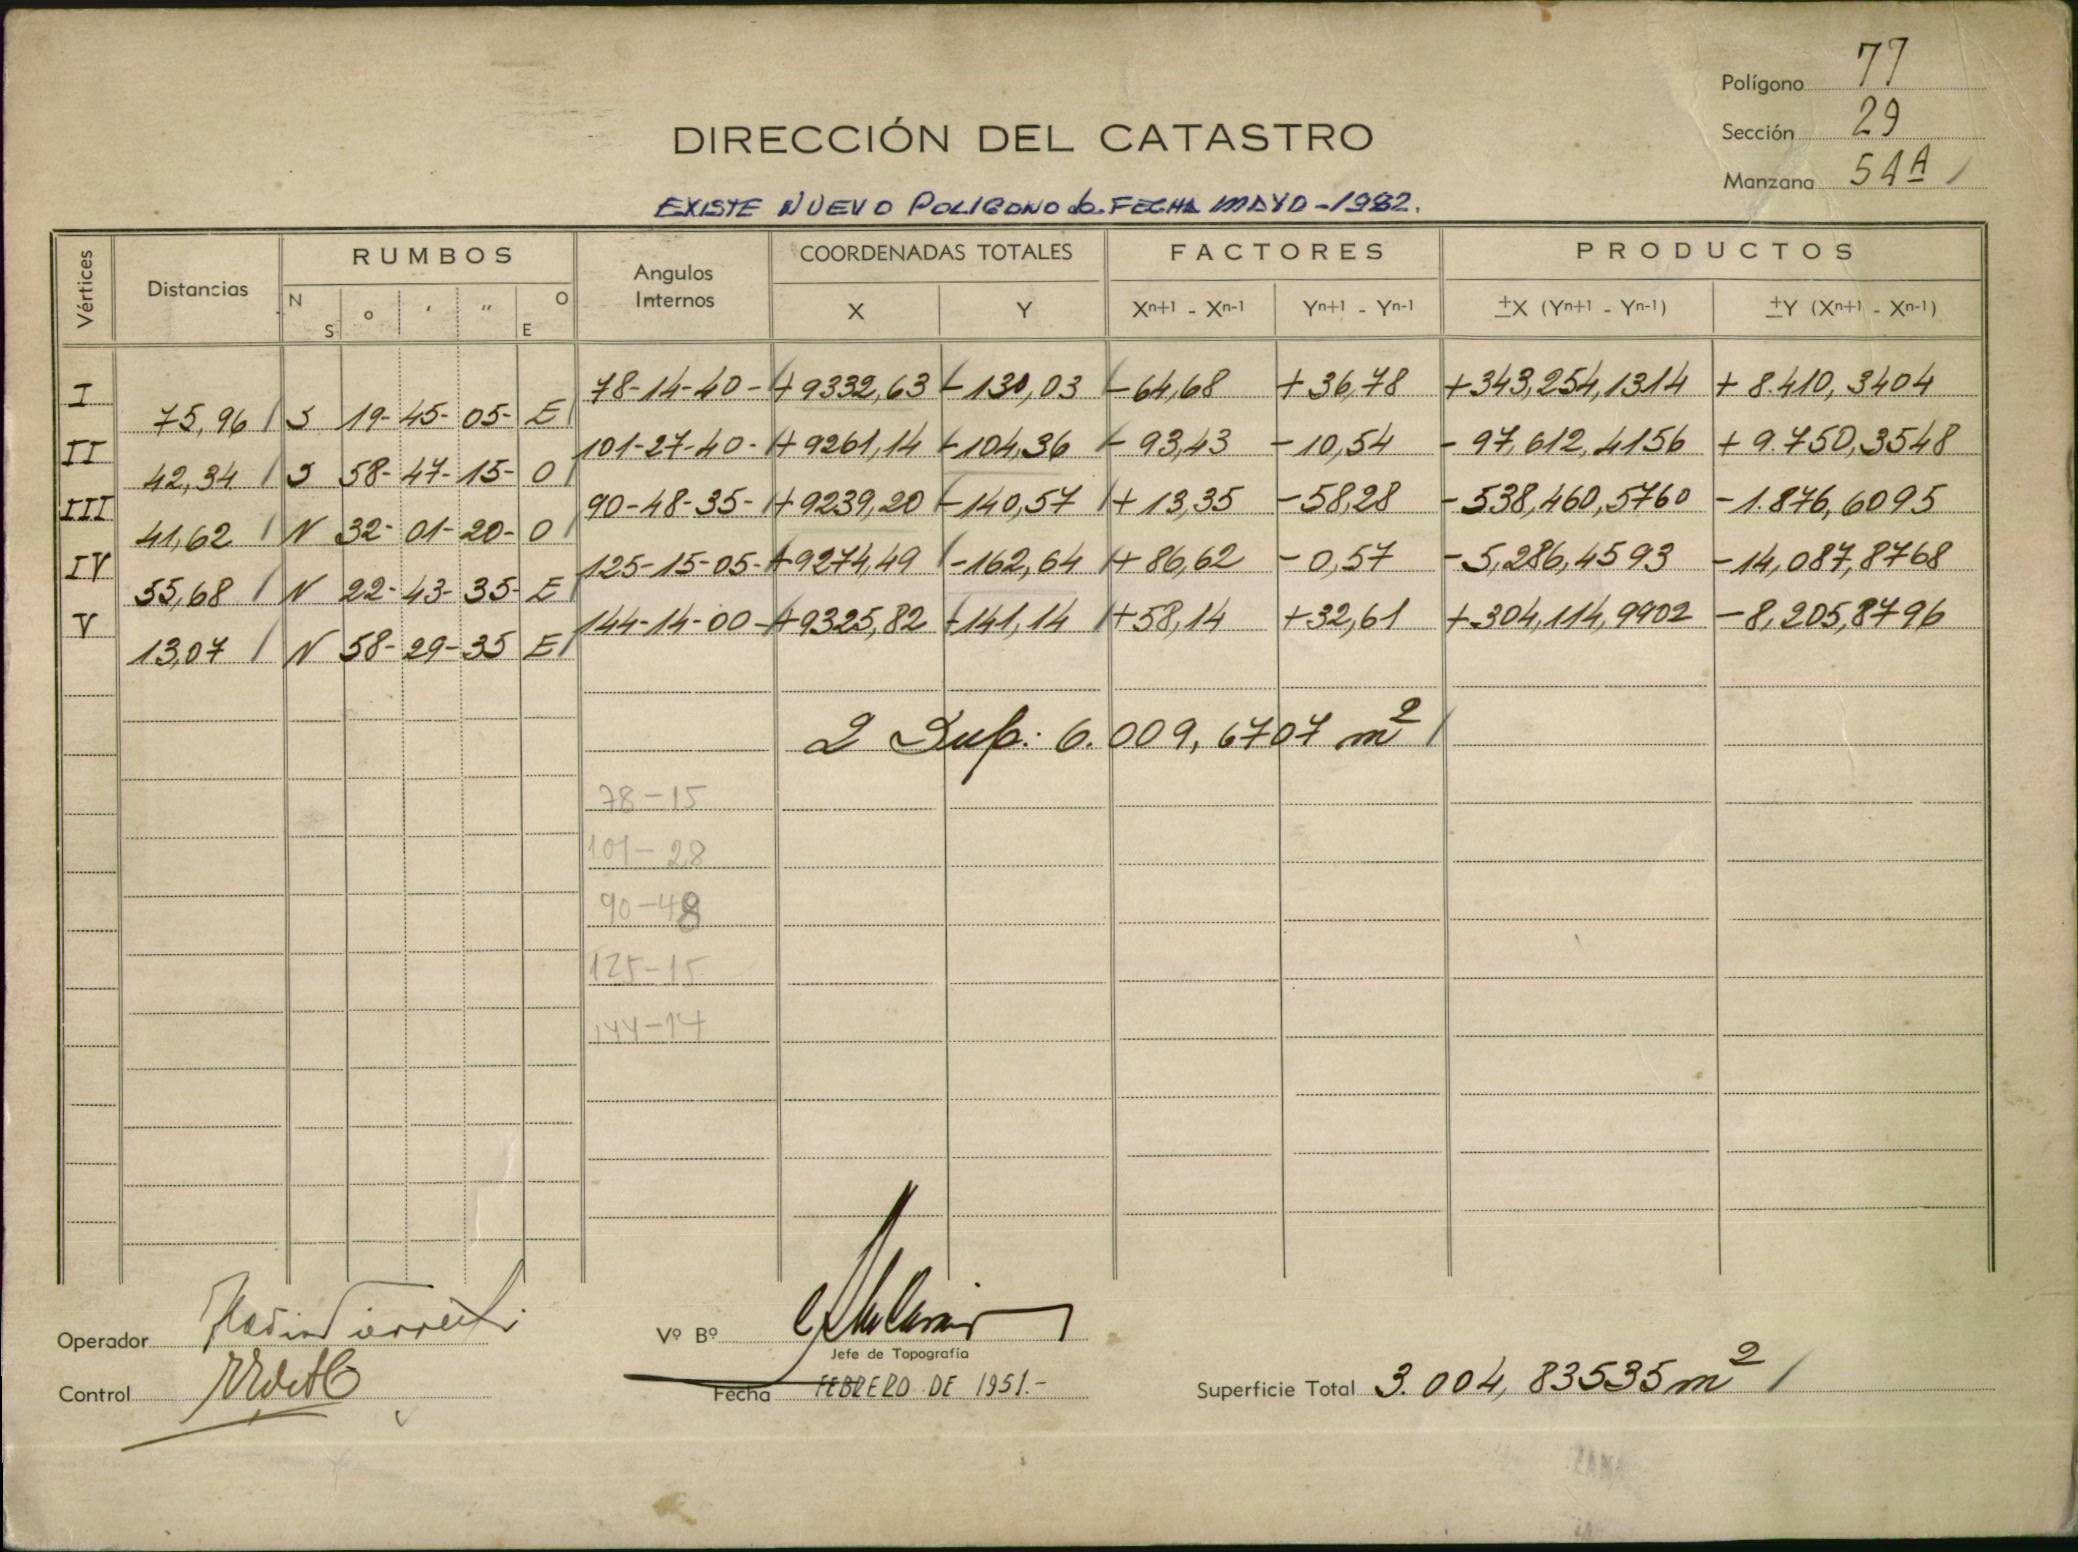 Polígono 77
Sección 29
Manzana 54A
DIRECCIÓN DEL CATASTRO
EXISTE NUEVO POLIGONO de FECHA MAYO-1982.
Vértices Distancias RUMBOS Angulos Internos COORDENADAS TOTALES FACTORES PRODUCTOS
N S o ' " O E X Y Xn+1 - Xn-1 Yn+1 - Yn-1 ±X (Yn+1 - Yn-1) ±Y (Xn+1 - Xn-1)
I 78-14-40- +9332,63 -130,03 -64,68 +36,78 +343,254,1314 +8.410,3404
75,96 S 19-45-05- E
II 101-27-40- +9261,14 -104,36 -93,43 -10,54 -97,612,4156 +9.750,3548
42,34 S 58-47-15- O
III 90-48-35- +9239,20 -140,57 +13,35 -58,28 -538,460,5760 -1.876,6095
41,62 N 32-01-20- O
IV 125-15-05- +9274,49 -162,64 +86,62 -0,57 -5,286,4593 -14,087,8768
55,68 N 22-43-35- E
V 144-14-00- +9325,82 -141,14 +58,14 +32,61 +304,114,9902 -8,205,8796
13,07 N 58-29-35 E
2 Sup: 6.009,6707 m2
78-15
101-28
90-48
125-15
144-14
Operador
Vº Bº
Jefe de Topografía
Control
Fecha FEBRERO DE 1951.-
Superficie Total 3.004,83535 m2